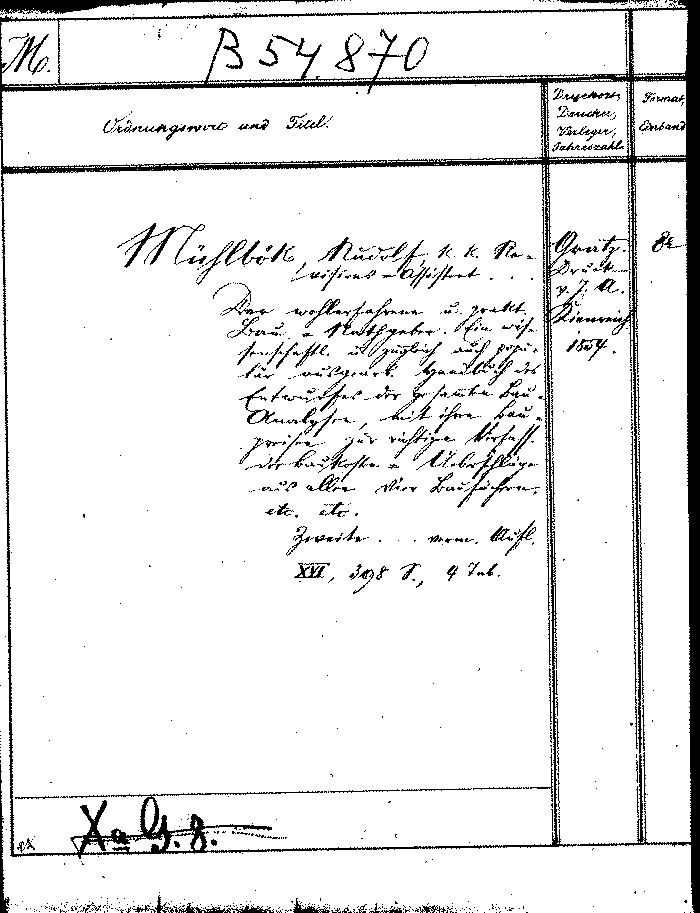 M.
B 54.870
Ordnungswort und Titel.
Druckort,
Drucker,
Verleger,
Jahreszahl
Format,
Einband
Mühlbök, Rudolf k. k. Re-
visions-Assistent . . .
Der wohlerfahrene u. prakt.
Bau-Rathgeber. Ein wis-
senschaftl. u. zugleich auch popu-
lär ausgearb. Handbuch des
Entwurfes der gesammten Bau-
Analysen, mit ihren Bau-
preisen zur richtigen Verfass.
der Baukosten-Ueberschläge
aus allen vier Baufächern,
etc. etc.
Zweite . . . verm. Aufl.
XVI, 398 S., 4 Tab.
Gratz.
Druck
v. J. A.
Kienreich
1854.
8°
Xa G. 8.